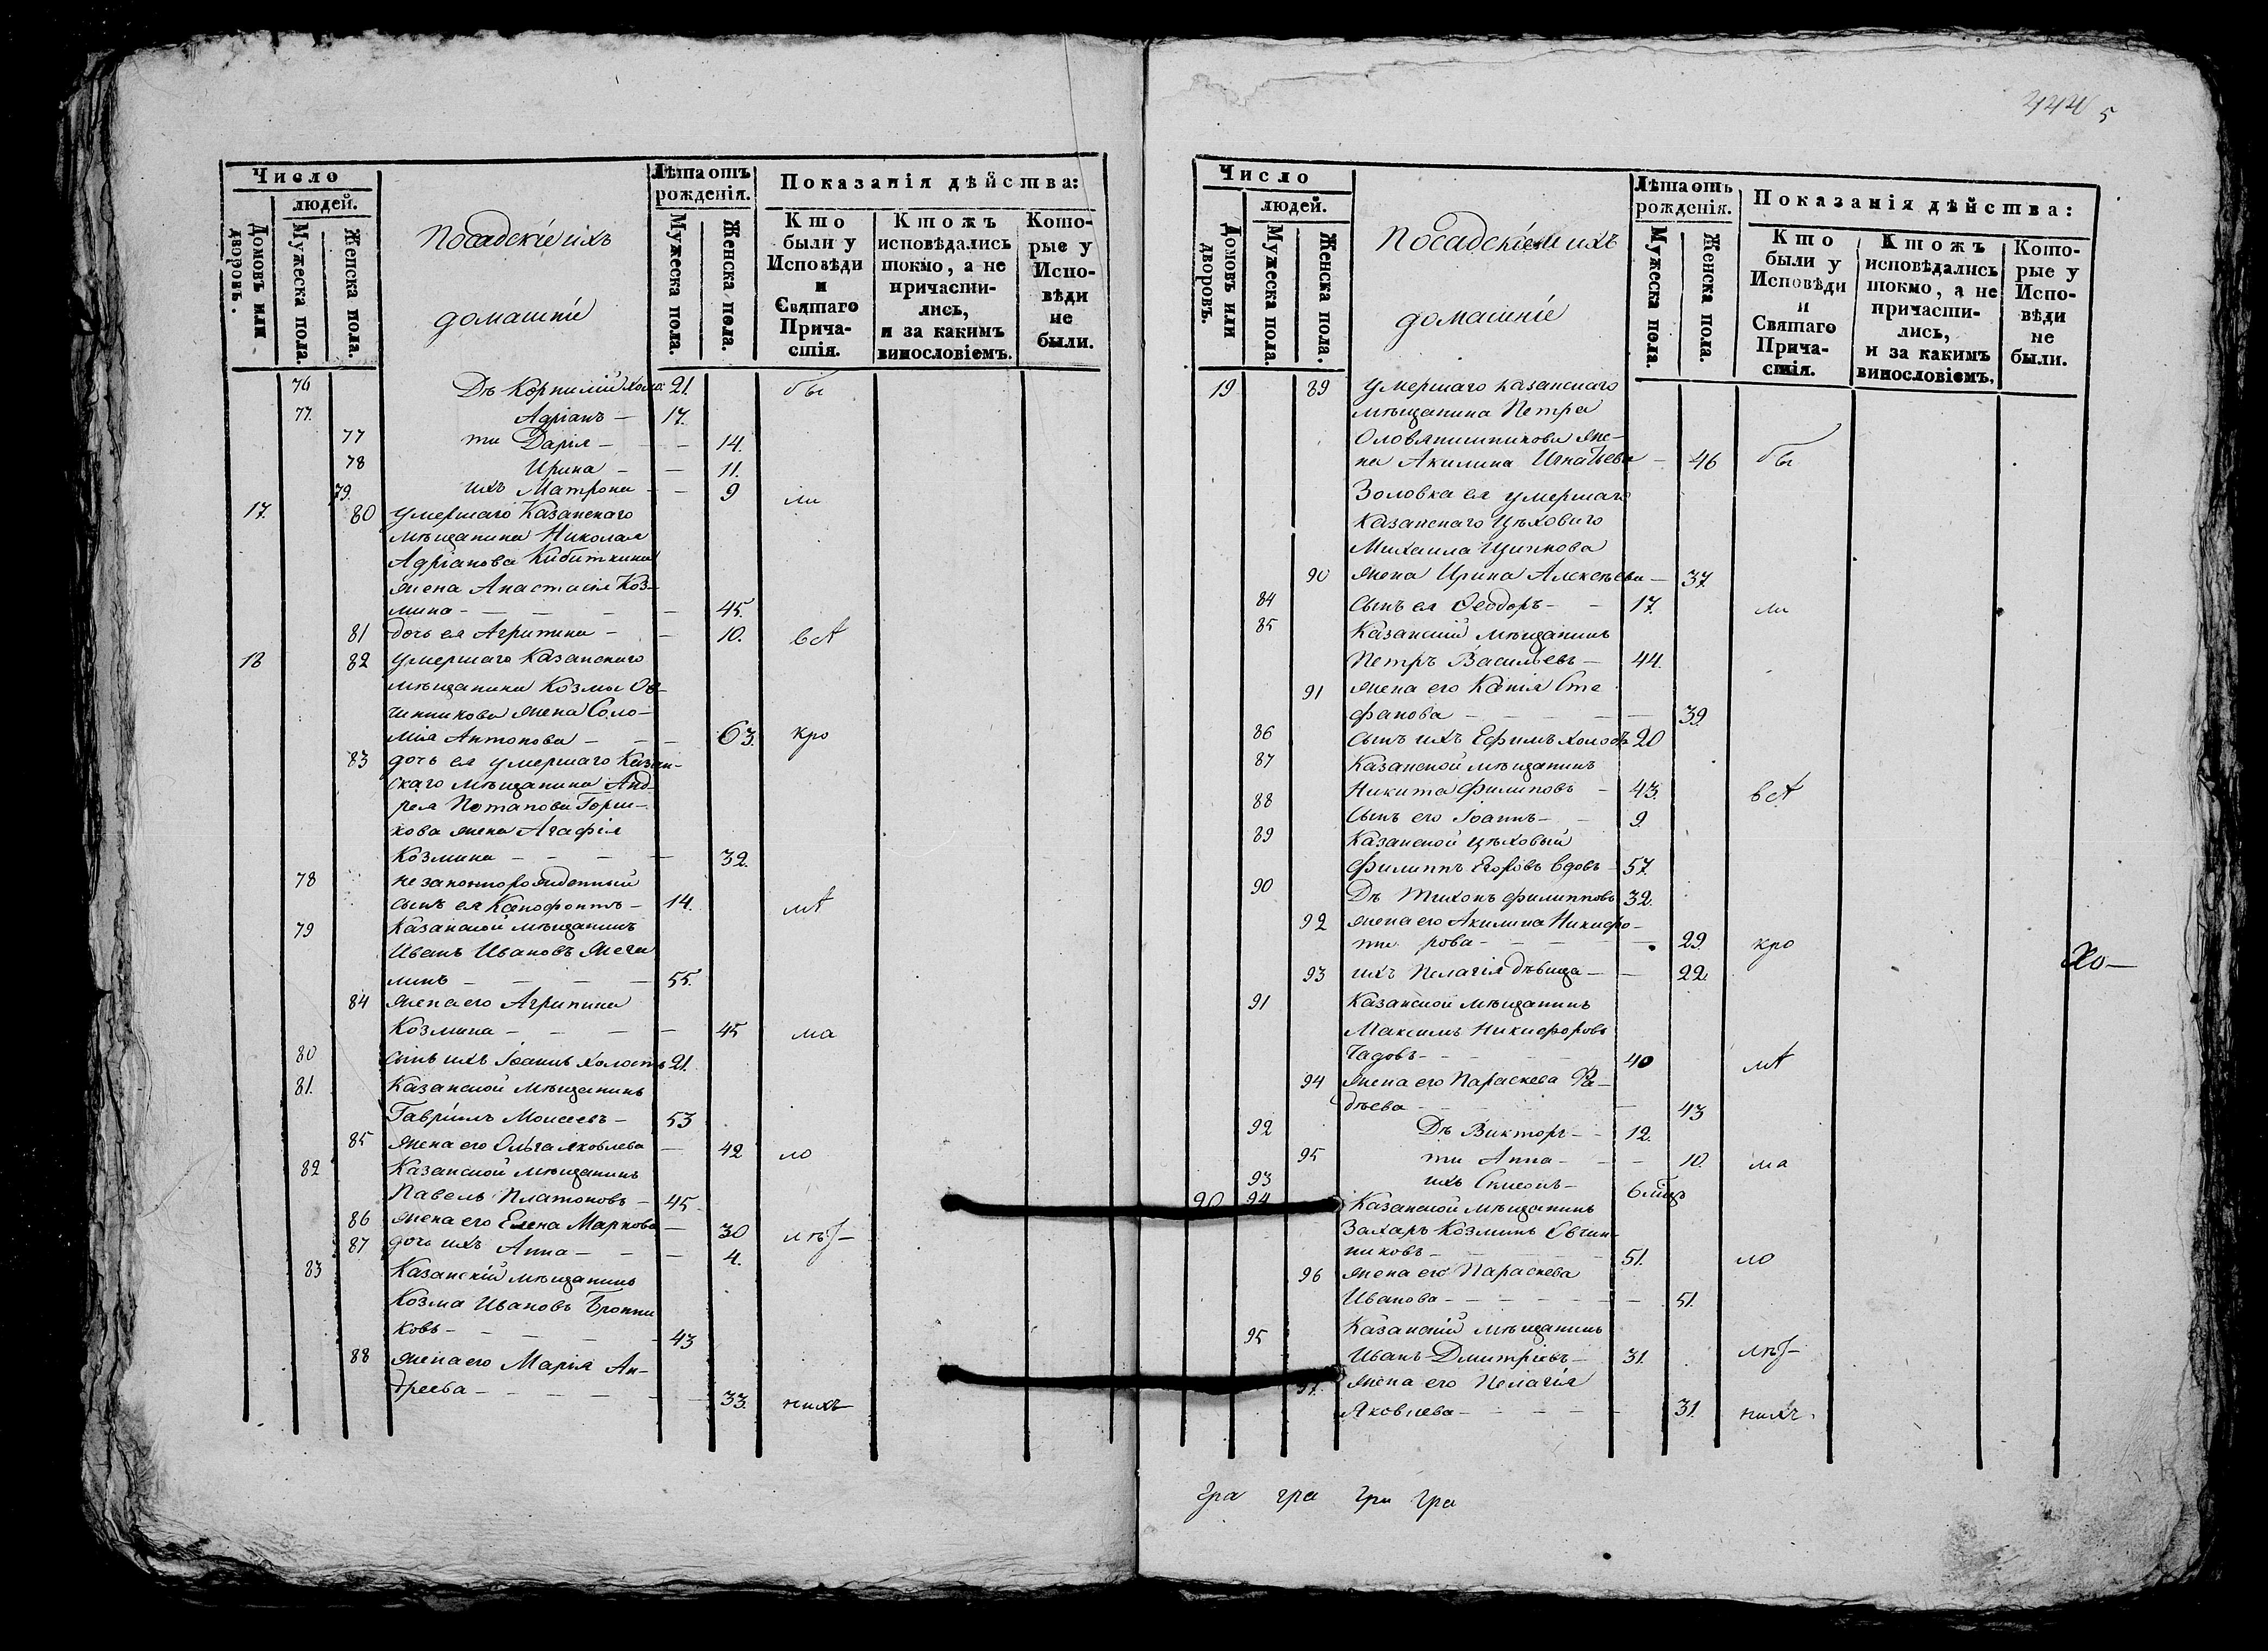 444 5
Число
людей.
Домовъ или дворовъ.
Мужеска пола.
Женска пола.
Посадскіе ихъ
домашніе
Лѣта отъ рожденія.
Мужеска пола.
Женска пола.
Показанія дѣйства:
Кто были у Исповѣди и Святаго Прича-стія.
Ктожъ исповѣдались токмо, а не причасти-лись, и за какимъ винословіемъ.
Кото-рые у Испо-вѣди не были.
76 Дѣ Корнилій холо: 21. бы
77. Адріанъ — 17.
77 ти Дарія — — 14.
78 Ирина — — 11.
79. ихъ Матрона — — 9 ли
17. 80 умершаго Казанскаго
мѣщанина Николая
Адріанова Кибиткина
жена Анастасія Коз-
мина — — — — 45.
81 дочь ея Агрипина — — 10. всѣ
18 82 умершаго Казанскаго
мѣщанина Козмы Ов-
чинникова жена Соло-
мія Антонова — — — 63. кро
83 дочь ея умершаго Казан-
скаго мѣщанина Анд-
рея Потапова Горш-
кова жена Агафія
Козмина — — — — 32.
78 незаконнорожденный
сынъ ея Ксенофонтъ — 14. мѣ
79 Казанской мѣщанинъ
Иванъ Ивановъ
линъ — — — — 55.
84 жена его Агрипина
Козмина — — — — 45 ма
80 сынъ ихъ Іоаннъ холостъ 21.
81. Казанской мѣщанинъ
Гавріилъ Моисеевъ — 53
85 жена его Ольга Яковлева — 42 ло
82 Казанской мѣщанинъ
Павелъ Платоновъ — 45
86 жена его Елена Маркова — 30 лѣт
87 дочь ихъ Анна — — — 4.
83 Казанскій мѣщанинъ
Козма Ивановъ Бронни
ковъ — — — — 43
88 жена его Марія Ан-
дреева — — — — — 33. нихъ
Число
людей.
Домовъ или дворовъ.
Мужеска пола.
Женска пола.
Посадскіе и ихъ
домашніе
Лѣта отъ рожденія.
Мужеска пола
Женска пола.
Показанія дѣйства:
Кто были у Исповѣди и Святаго Прича-стія.
Ктожъ исповѣдались токмо, а не причасти-лись, и за какимъ винословіемъ.
Кото-рые у Испо-вѣди не были.
19 89 умершаго казанскаго
мѣщанина Петра
Оловянишникова же-
на Акилина Игнатьева — 46 бы
Золовка ея умершаго
Казанскаго цѣховаго
Михаила Щипкова
90 жена Ирина Алексѣева — 37
84 сынъ ея Ѳеодоръ — — 17. ли
85 Казанскій мѣщанинъ
Петръ Васильевъ — 44.
91 жена его Ксенія Сте
фанова — — — — — 39.
86 сынъ ихъ Ефимъ холостъ 20
87 Казанской мѣщанинъ
Никита Филиповъ — 43. всѣ
88 сынъ его Іоаннъ — — 9.
89 Казанской цѣховый
Филиппъ Егоровъ вдовъ — 57.
90 Дѣ Тихонъ Филипповъ 32.
92 жена его Акилина Никифо-
ти рова — — — — 29. кро
93 ихъ Пелагія дѣвица — — 22.
Хо—
91 Казанской мѣщанинъ
Максимъ Никифоровъ
Чадовъ — — 40 мѣ
94 жена его Параскева Фа-
дѣева — — — — 43
92 Дѣ Викторъ — — 12.
95 ти Анна — — — 10. ма
93 ихъ Симеонъ — 6 мцъ
20 94 Казанской мѣщанинъ
Захаръ Козминъ Овчин-
никовъ — — 51. ло
96 жена его Параскева
Иванова — — — — — 51.
95 Казанскій мѣщанинъ
Иванъ Дмитріевъ — 31. лѣт
97. жена его Пелагія
Яковлева — — — — — 31. нихъ.
Гра гра гри гра